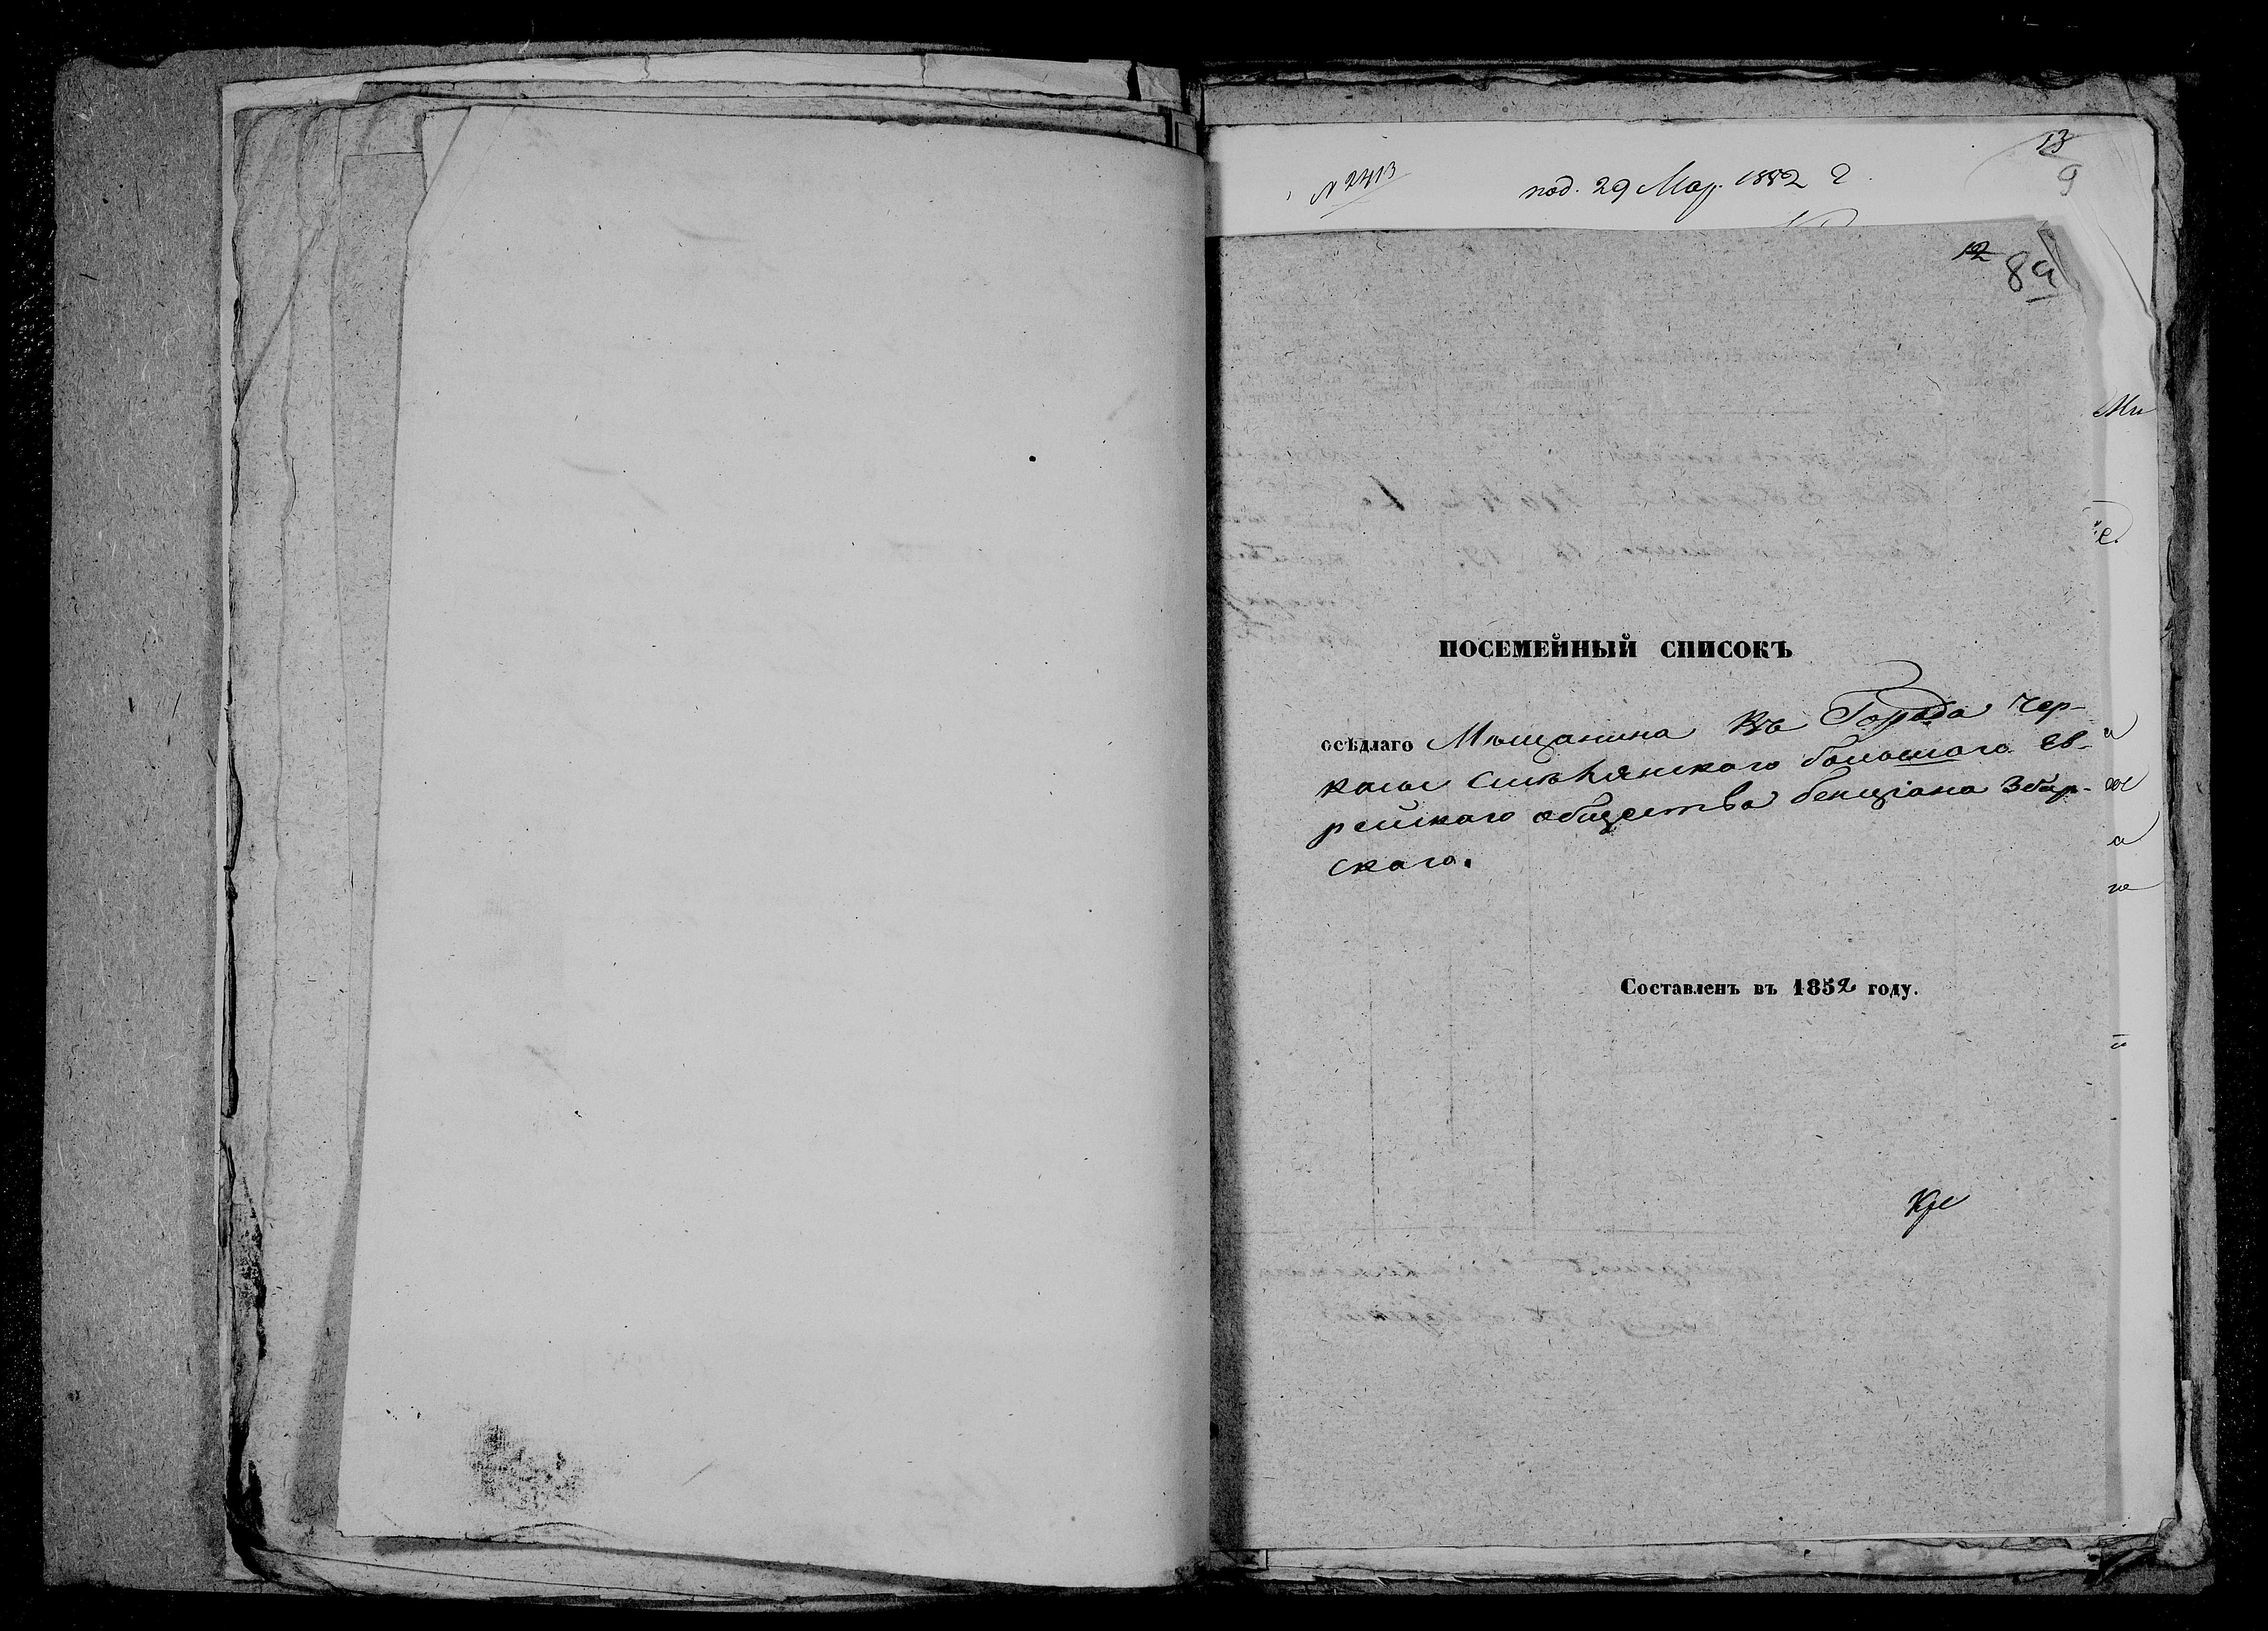 13
№ 2413
под. 29 Мар. 1852 г.
9
12
89
Ми
ПОСЕМЕЙНЫЙ СПИСОКЪ
осѣдлаго Мѣщанина Къ Города Чер-
касы Смѣлянского большаго Ев-
рейскаго общества Бенціана Збар-
скаго.
Составленъ въ 1852 году.